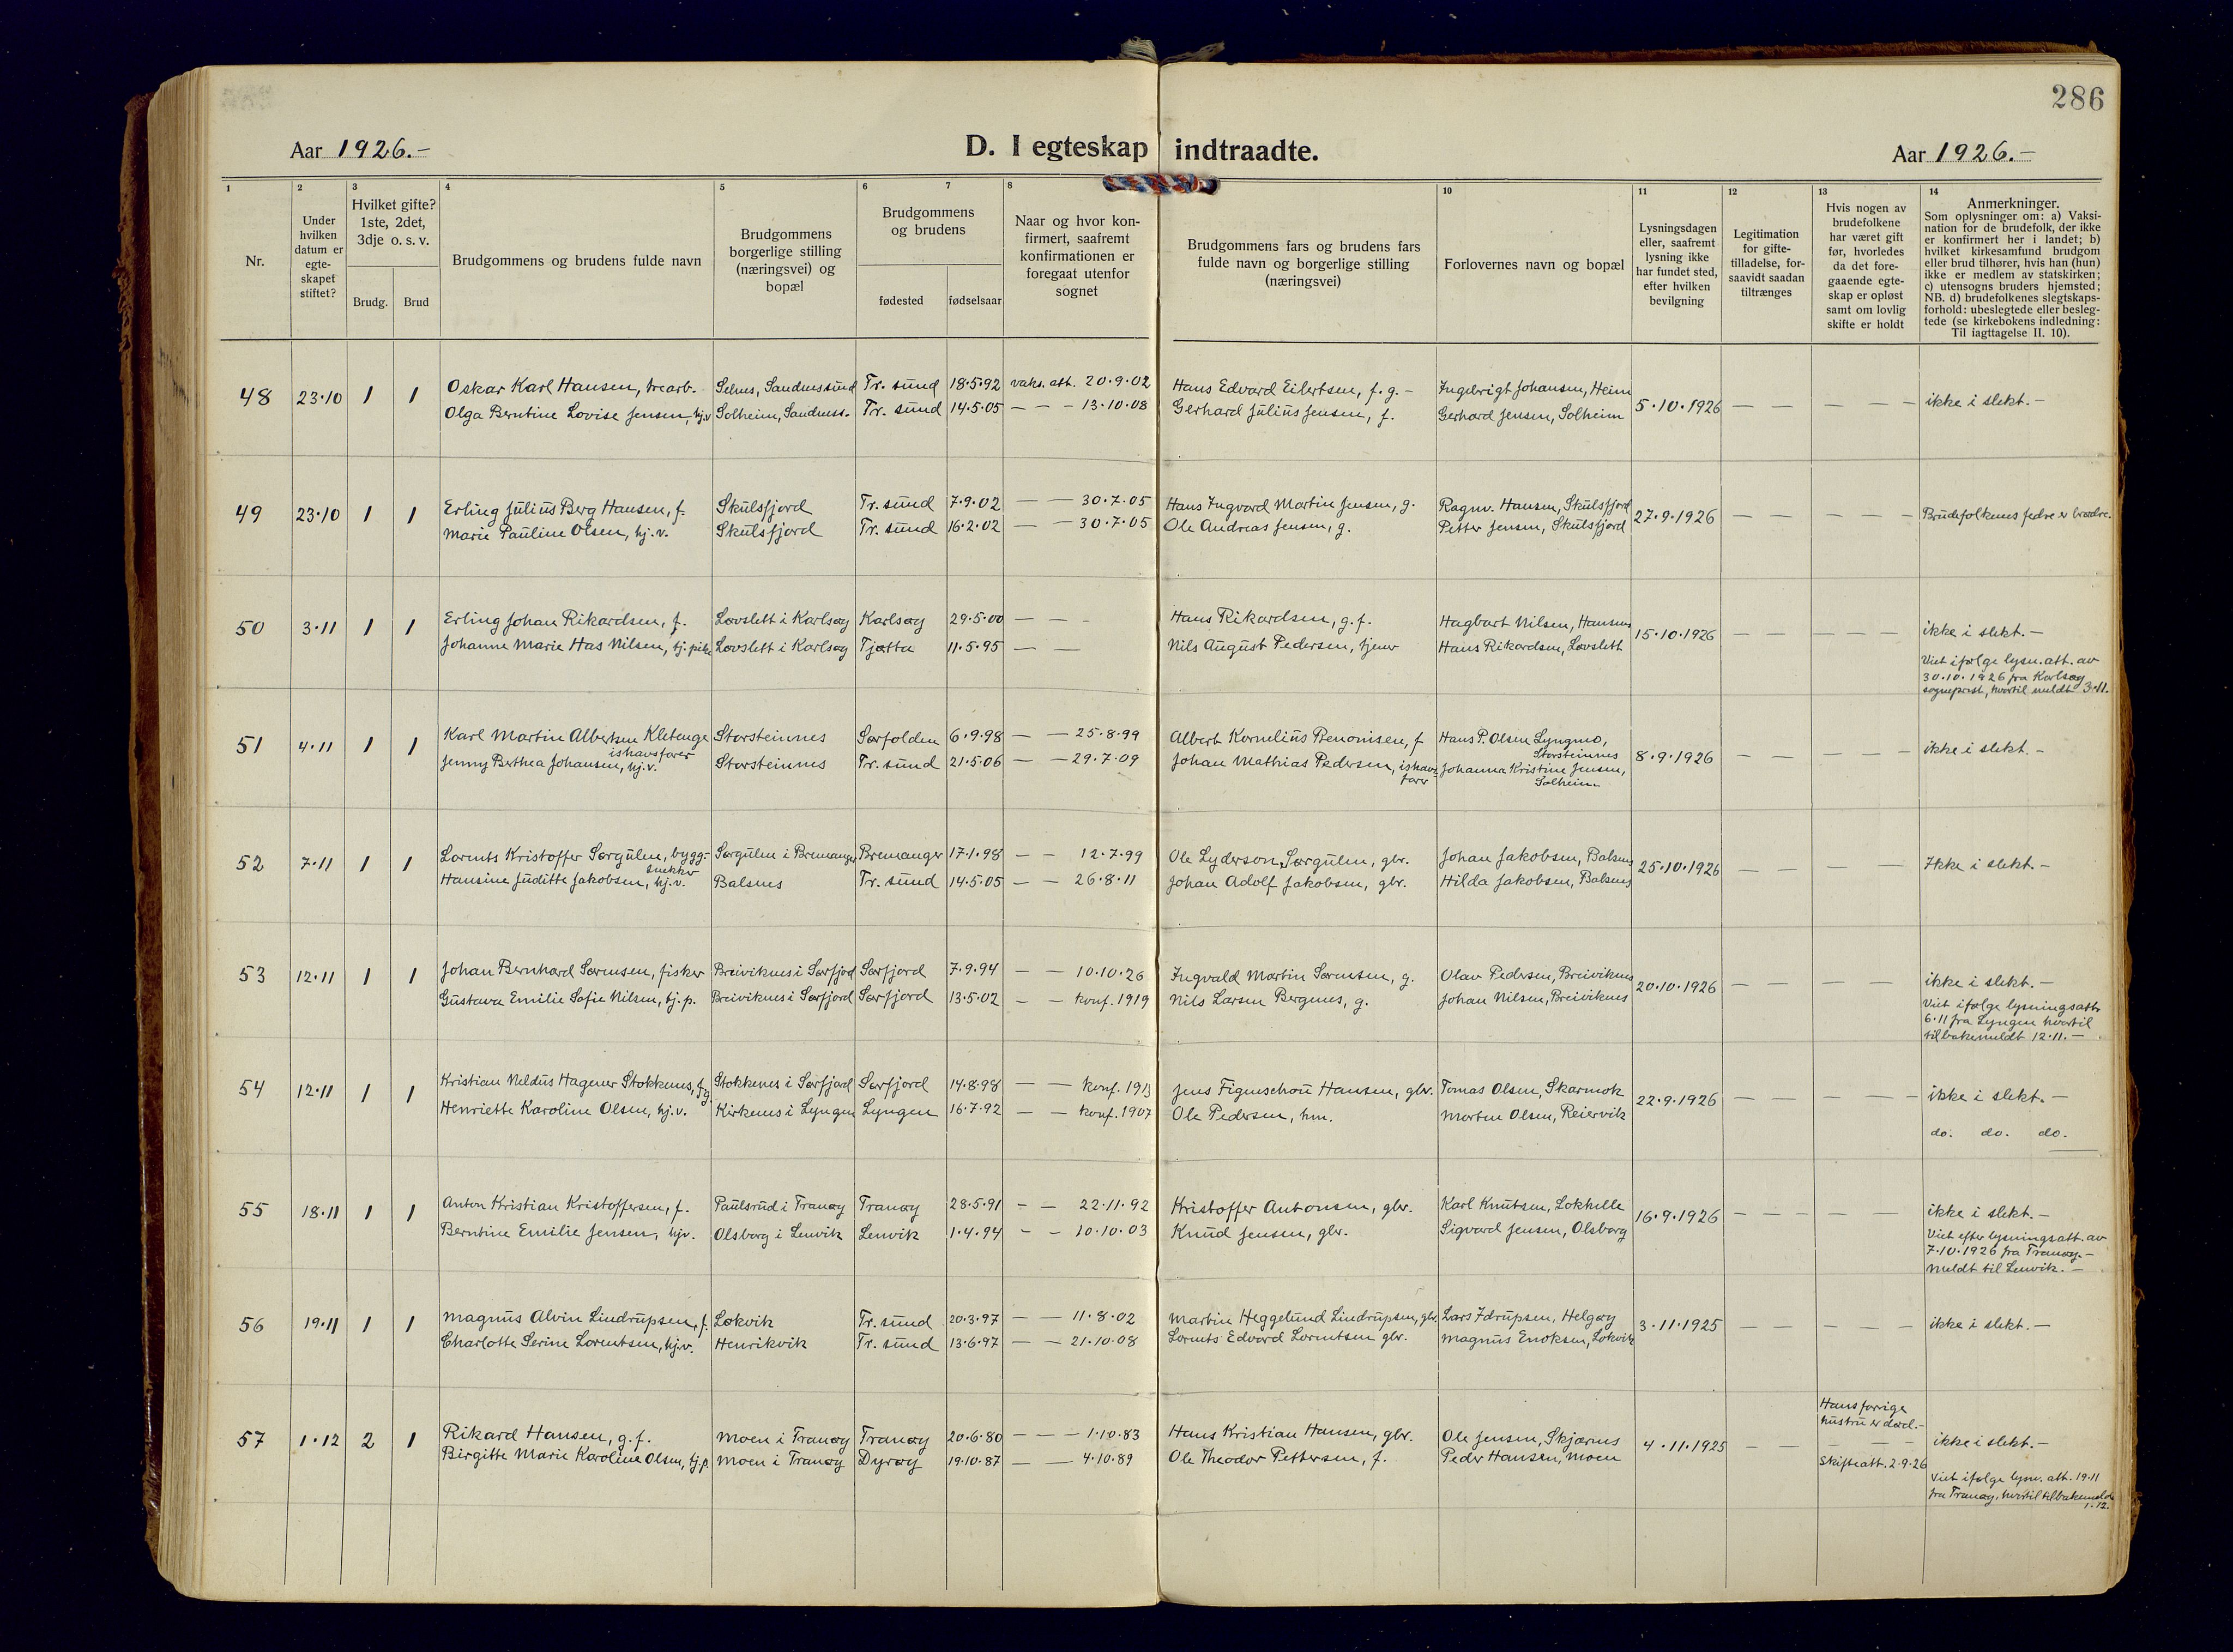 286
Aar 1926.-
D. I egteskap indtraadte.
Aar 1926.-
1 2 3 4 5 6 7 8 10 11 12 13 14
Nr.
Under hvilken datum er egte-skapet stiftet?
Hvilket gifte? 1ste, 2det, 3dje o. s. v.
Brudg. Brud
Brudgommens og brudens fulde navn
Brudgommens borgerlige stilling (næringsvei) og bopæl
Brudgommens og brudens
fødested fødselsaar
Naar og hvor kon-firmert, saafremt konfirmationen er foregaat utenfor sognet
Brudgommens fars og brudens fars fulde navn og borgerlige stilling (næringsvei)
Forlovernes navn og bopæl
Lysningsdagen eller, saafremt lysning ikke har fundet sted, efter hvilken bevilgning
Legitimation for gifte-tilladelse, for-saavidt saadan tiltrænges
Hvis nogen av brudefolkene har været gift før, hvorledes da det fore-gaaende egte-skap er opløst samt om lovlig skifte er holdt
Anmerkninger.
Som oplysninger om: a) Vaksi-nation for de brudefolk, der ikke er konfirmert her i landet; b) hvilket kirkesamfund brudgom eller brud tilhører, hvis han (hun) ikke er medlem av statskirken; c) utensogns bruders hjemsted; NB. d) brudefolkenes slegtskaps-forhold: ubeslegtede eller besleg-tede (se kirkebokens indledning: Til iagttagelse II. 10).
48 23.10 1 1 Oskar Karl Hansen, trearb. Selnes, Sandnessund Tr. sund 18.5.92 vaks. att. 20.9.02 Hans Edvard Eilertsen, f. g. - Ingebrigt Johansen, Heim 5.10.1926 — — — — ikke i slekt. -
Olga Berntine Lovise Jensen, hj.v Solheim, Sandness. Tr. sund 14.5.05 — — — 13.10.08 Gerhard Julius Jensen, f. Gerhard Jensen, Solheim
49 23.10 1 1 Erling Julius Berg Hansen, f. Skulsfjord Tr. sund 7.9.02 — — 30.7.05 Hans Ingvard Martin Jensen, g. Ragnv. Hansen, Skulsfjord 27.9.1926 — — — — Brudefolkenes fedre er brødre.
Marie Pauline Olsen, hj.v. Skulsfjord Tr. sund 16.2.02 — — 30.7.05 Ole Andreas Jensen, g. Petter Jensen, Skulsfjord
50 3.11 1 1 Erling Johan Rikardsen, f. Løvslett i Karlsøy Karlsøy 29.5.00 — — - Hans Rikardsen, g. f. Hagbart Nilsen, Hansnes 15.10.1926 — — — — — ikke i slekt. -
Johanne Marie Has Nilsen, tj. pike Løvslett i Karlsøy Tjøtta 11.5.95 — — Nils August Pedersen, tjener Hans Rikardsen, Løvslett
Viet ifølge lysn. att. av
30.10.1926 fra Karlsøy
sogneprest, hvortil meldt 3.11.
51 4.11 1 1 Karl Martin Albertsen Kletenge Storsteinnes Sørfolden 6.9.98 — — 25.8.99 Albert Kornelius Benonisen, f Hans P. Olsen Lyngmo, 8.9.1926 — — — — ikke i slekt. -
ishavsfarer Storsteinnes
Jenny Berthea Johansen, hj.v. Storsteinnes Tr. sund 21.5.06 — — 29.7.09 Johan Mathias Pedersen, ishavsfarer Johanna Kristine Jensen,
Solheim
52 7.11 1 1 Lorents Kristoffer Sørgulen, bygg- Sørgulen i Bremanger Bremanger 17.1.98 — — 12.7.99 Ole Lyderson Sørgulen, gbr. Johan Jakobsen, Balsnes 25.10.1926 — — — — Ikke i slekt. -
snekker
Hansine Juditte Jakobsen, hj.v. Balsnes Tr. sund 14.5.05 — — 26.8.11 Johan Adolf Jakobsen, gbr. Hilda Jakobsen, Balsnes
53 12.11 1 1 Johan Bernhard Sørensen, fisker Breiviknes i Sørfjord Sørfjord 7.9.94 — — 10.10.26 Ingvald Martin Sørensen, g. Olav Pedersen, Breiviknes 20.10.1926 — — — — ikke i slekt. -
Gustava Emilie Sofie Nilsen, tj. p. Breiviknes i Sørfjord Sørfjord 13.5.02 — — konf. 1919 Nils Larsen Bergnes, g. Johan Nilsen, Breiviknes
Viet ifølge lysningsatt
6.11 fra Lyngen hvortil
tilbakemeldt 12.11. -
54 12.11 1 1 Kristian Neldus Hagener Stokkenes, f.g. Stokkenes i Sørfjord Sørfjord 14.8.98 — — konf. 1913 Jens Figenschou Hansen, gbr. Tomas Olsen, Skarmok 22.9.1926 — — — — ikke i slekt. -
Henriette Karoline Olsen, hj.v. Kirkenes i Lyngen Lyngen 16.7.92 — — konf. 1907 Ole Pedersen, hm. Morten Olsen, Reiervik
do. do. do.
55 18.11 1 1 Anton Kristian Kristoffersen, f. Paulsrud i Tranøy Tranøy 28.5.91 — — 22.11.92 Kristoffer Antonsen, gbr. Karl Knutsen, Lokhelle 16.9.1926 — — — — — ikke i slekt. -
Berntine Emilie Jensen, hjv. Olsborg i Lenvik Lenvik 1.4.94 — — 10.10.03 Knud Jensen, gbr. Sigvard Jensen, Olsborg
Viet efter lysningsatt. av
7.10.1926 fra Tranøy. -
Meldt til Lenvik. -
56 19.11 1 1 Magnus Alvin Lindrupsen, f. Løkvik Tr. sund 20.3.97 — — 11.8.02 Martin Heggelund Lindrupsen, gbr. Lars Idrupsen, Helgøy 3.11.1925 — — — — — ikke i slekt. -
Charlotte Serine Lorentsen, hj.v. Henrikvik Tr. sund 13.6.97 — — 21.10.08 Lorents Edvard Lorentsen gbr. Magnus Enoksen, Løkvik
Hans forrige
hustru er død. -
57 1.12 2 1 Rikard Hansen, g. f. Moen i Tranøy Tranøy 20.6.80 — — — 1.10.83 Hans Kristian Hansen, gbr. Ole Jensen, Skjærnes 4.11.1925 — — — — — ikke i slekt. -
Birgitte Marie Karoline Olsen, tj.p. Moen i Tranøy Dyrøy 19.10.87 — — 4.10.89 Ole Theodor Pettersen, f. Peder Hansen, Moen Skifteatt. 2.9.26
Viet ifølge lysn. att. 19.11
fra Tranøy, hvortil tilbakemeldt
1.12.